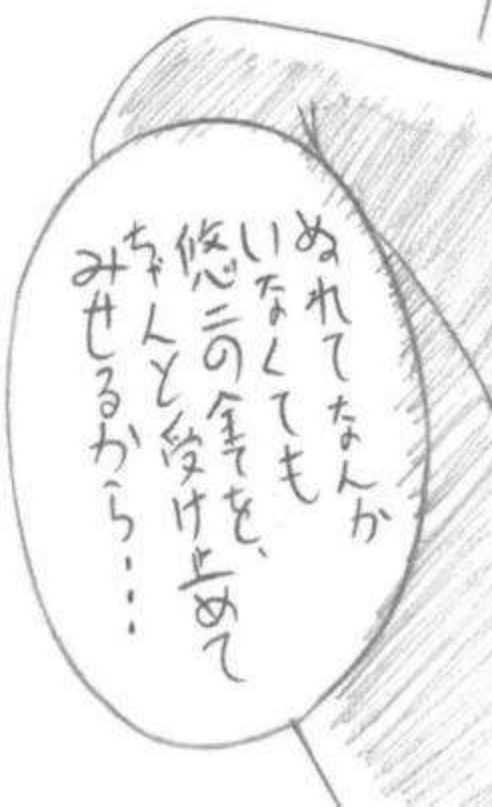 ぬれてなんか
いなくても
悠二の全てを、
ちゃんと受け止めて
みせるから・・・